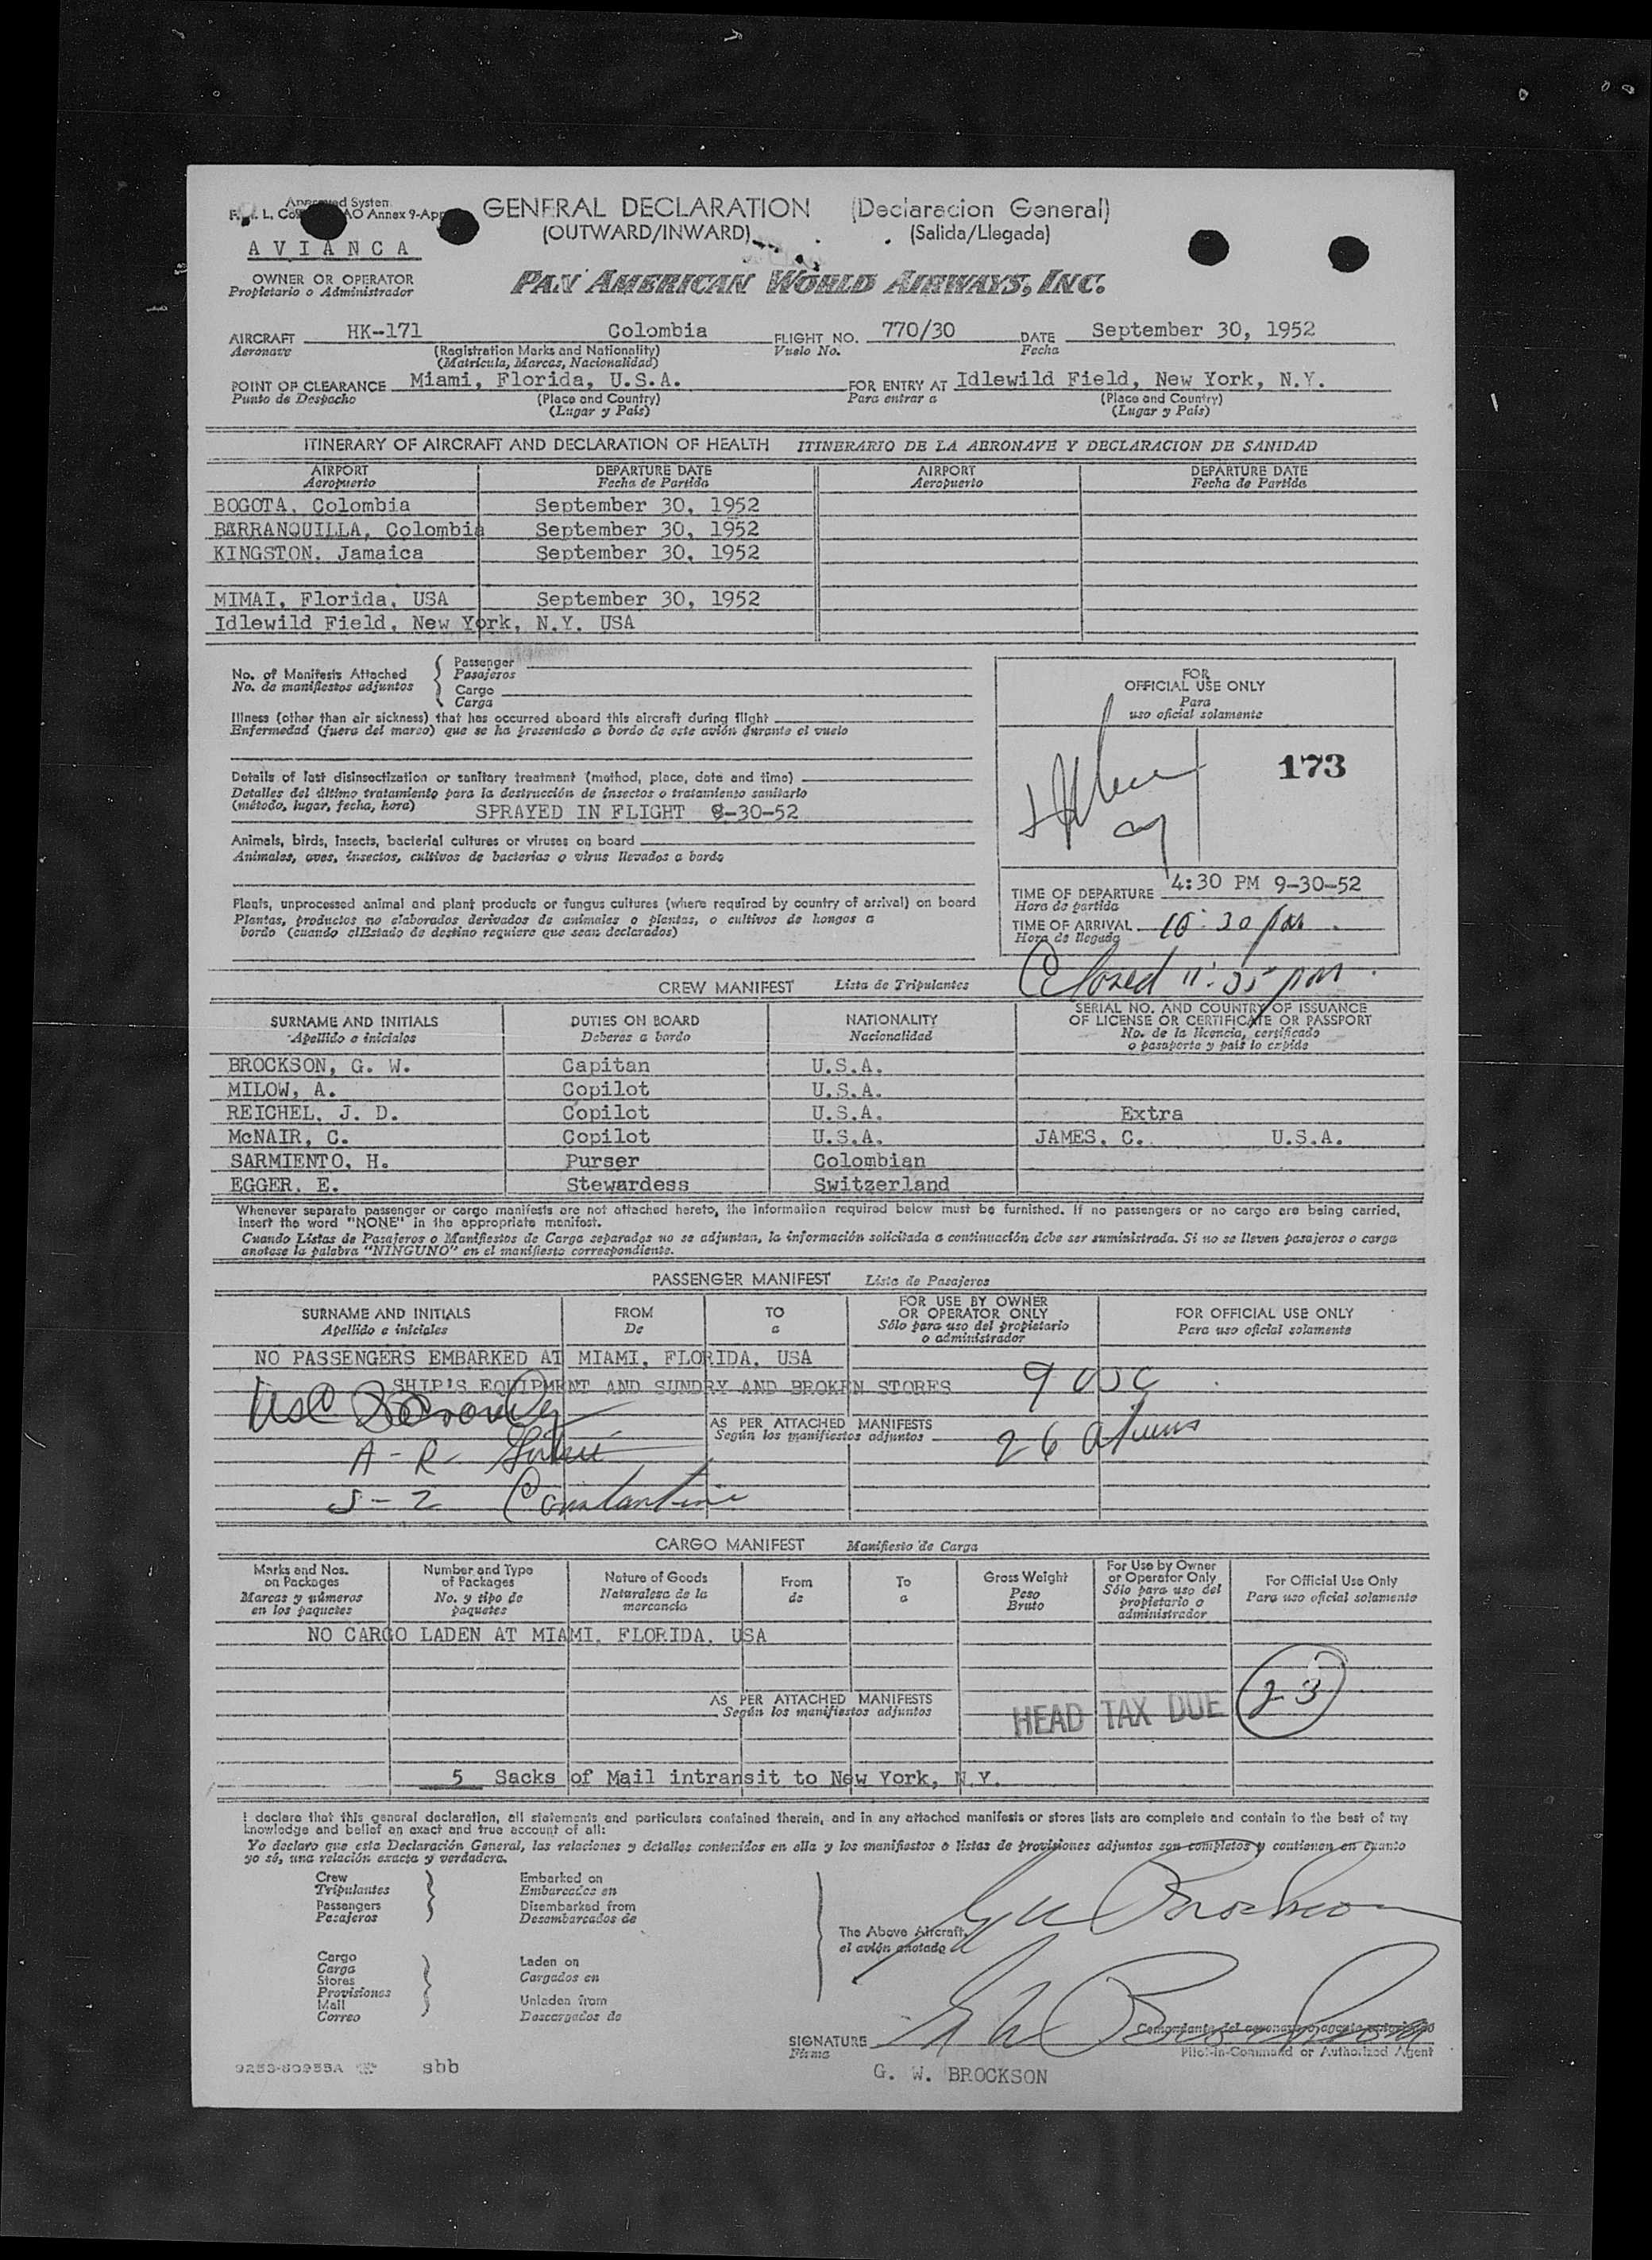 GENERAL DECLARATION (Declaracion General)
(OUTWARD/INWARD) (Salida/Llegada)
AVIANCA
OWNER OR OPERATOR
Propietario o Administrador
PAN AMERICAN WORLD AIRWAYS, INC.
AIRCRAFT HK-171 Colombia FLIGHT NO. 770/30 DATE September 30, 1952
Aeronave (Registration Marks and Nationality) Vuelo No. Fecha
(Matricula, Marcas, Nacionalidad)
POINT OF CLEARANCE Miami, Florida, U.S.A. FOR ENTRY AT Idlewild Field, New York, N.Y.
Punto de Despacho (Place and Country) Para entrar a (Place and Country)
(Lugar y País) (Lugar y País)
ITINERARY OF AIRCRAFT AND DECLARATION OF HEALTH ITINERARIO DE LA AERONAVE Y DECLARACION DE SANIDAD
AIRPORT DEPARTURE DATE AIRPORT DEPARTURE DATE
Aeropuerto Fecha de Partida Aeropuerto Fecha de Partida
BOGOTA, Colombia September 30, 1952
BARRANQUILLA, Colombia September 30, 1952
KINGSTON, Jamaica September 30, 1952
MIMAI, Florida, USA September 30, 1952
Idlewild Field, New York, N.Y. USA
No. of Manifests Attached Passenger
No. de manifiestos adjuntos Pasajeros
Cargo
Carga
Illness (other than air sickness) that has occurred aboard this aircraft during flight
Enfermedad (fuera del mareo) que se ha presentado a bordo de este avión durante el vuelo
Details of last disinsectization or sanitary treatment (method, place, date and time)
Detalles del último tratamiento para la destrucción de insectos o tratamiento sanitario
(método, lugar, fecha, hora) SPRAYED IN FLIGHT 9-30-52
Animals, birds, insects, bacterial cultures or viruses on board
Animales, aves, insectos, cultivos de bacterias o virus llevados a bordo
Plants, unprocessed animal and plant products or fungus cultures (where required by country of arrival) on board
Plantas, productos no elaborados derivados de animales o plantas, o cultivos de hongos a
bordo (cuando elEstado de destino requiere que sean declarados)
FOR
OFFICIAL USE ONLY
Para
uso oficial solamente
173
TIME OF DEPARTURE 4:30 PM 9-30-52
Hora de partida
TIME OF ARRIVAL 10:30 pm
Hora de llegada
Closed 11:35 pm
CREW MANIFEST Lista de Tripulantes
SURNAME AND INITIALS DUTIES ON BOARD NATIONALITY SERIAL NO. AND COUNTRY OF ISSUANCE
OF LICENSE OR CERTIFICATE OR PASSPORT
Apellido e iniciales Deberes a bordo Nacionalidad No. de la licencia, certificado
o pasaporte y país lo expide
BROCKSON, G. W. Capitan U.S.A.
MILOW, A. Copilot U.S.A.
REICHEL, J. D. Copilot U.S.A. Extra
McNAIR, C. Copilot U.S.A. JAMES, C. U.S.A.
SARMIENTO, H. Purser Colombian
EGGER, E. Stewardess Switzerland
Whenever separate passenger or cargo manifests are not attached hereto, the information required below must be furnished. If no passengers or no cargo are being carried,
insert the word "NONE" in the appropriate manifest.
Cuando Listas de Pasajeros o Manifiestos de Carga separados no se adjuntan, la información solicitada a continuación debe ser suministrada. Si no se lleven pasajeros o carga
anotese la palabra "NINGUNO" en el manifiesto correspondiente.
PASSENGER MANIFEST Lista de Pasajeros
SURNAME AND INITIALS FROM TO FOR USE BY OWNER OR OPERATOR ONLY FOR OFFICIAL USE ONLY
Apellido e iniciales De a Sólo para uso del propietario o administrador Para uso oficial solamente
NO PASSENGERS EMBARKED AT MIAMI, FLORIDA, USA
SHIP'S EQUIPMENT AND SUNDRY AND BROKEN STORES 9 USC
AS PER ATTACHED MANIFESTS
Según los manifiestos adjuntos 26 aliens
A-R-
S-2 Constantine
CARGO MANIFEST Manifiesto de Carga
Marks and Nos. on Packages Number and Type of Packages Nature of Goods From To Gross Weight For Use by Owner or Operator Only For Official Use Only
Marcas y números en los paquetes No. y tipo de paquetes Naturaleza de la mercancía de a Peso Bruto Sólo para uso del propietario o administrador Para uso oficial solamente
NO CARGO LADEN AT MIAMI, FLORIDA, USA
AS PER ATTACHED MANIFESTS
Según los manifiestos adjuntos
HEAD TAX DUE 23
5 Sacks of Mail intransit to New York, N.Y.
I declare that this general declaration, all statements and particulars contained therein, and in any attached manifests or stores lists are complete and contain to the best of my
knowledge and belief an exact and true account of all:
Yo declaro que esta Declaración General, las relaciones y detalles contenidos en ella y los manifiestos o listas de provisiones adjuntos son completos y contienen en cuanto
yo sé, una relación exacta y verdadera.
Crew Embarked on
Tripulantes Embarcados en
Passengers Disembarked from
Pasajeros Desembarcados de
The Above Aircraft
el avión anotado
G W Brockson
Cargo Laden on
Carga Cargados en
Stores
Provisiones
Mail Unladen from
Correo Descargados de
SIGNATURE G W Brockson
Firma
Comandante del aeronave o agente autorizado
Pilot-in-Command or Authorized Agent
G. W. BROCKSON
sbb